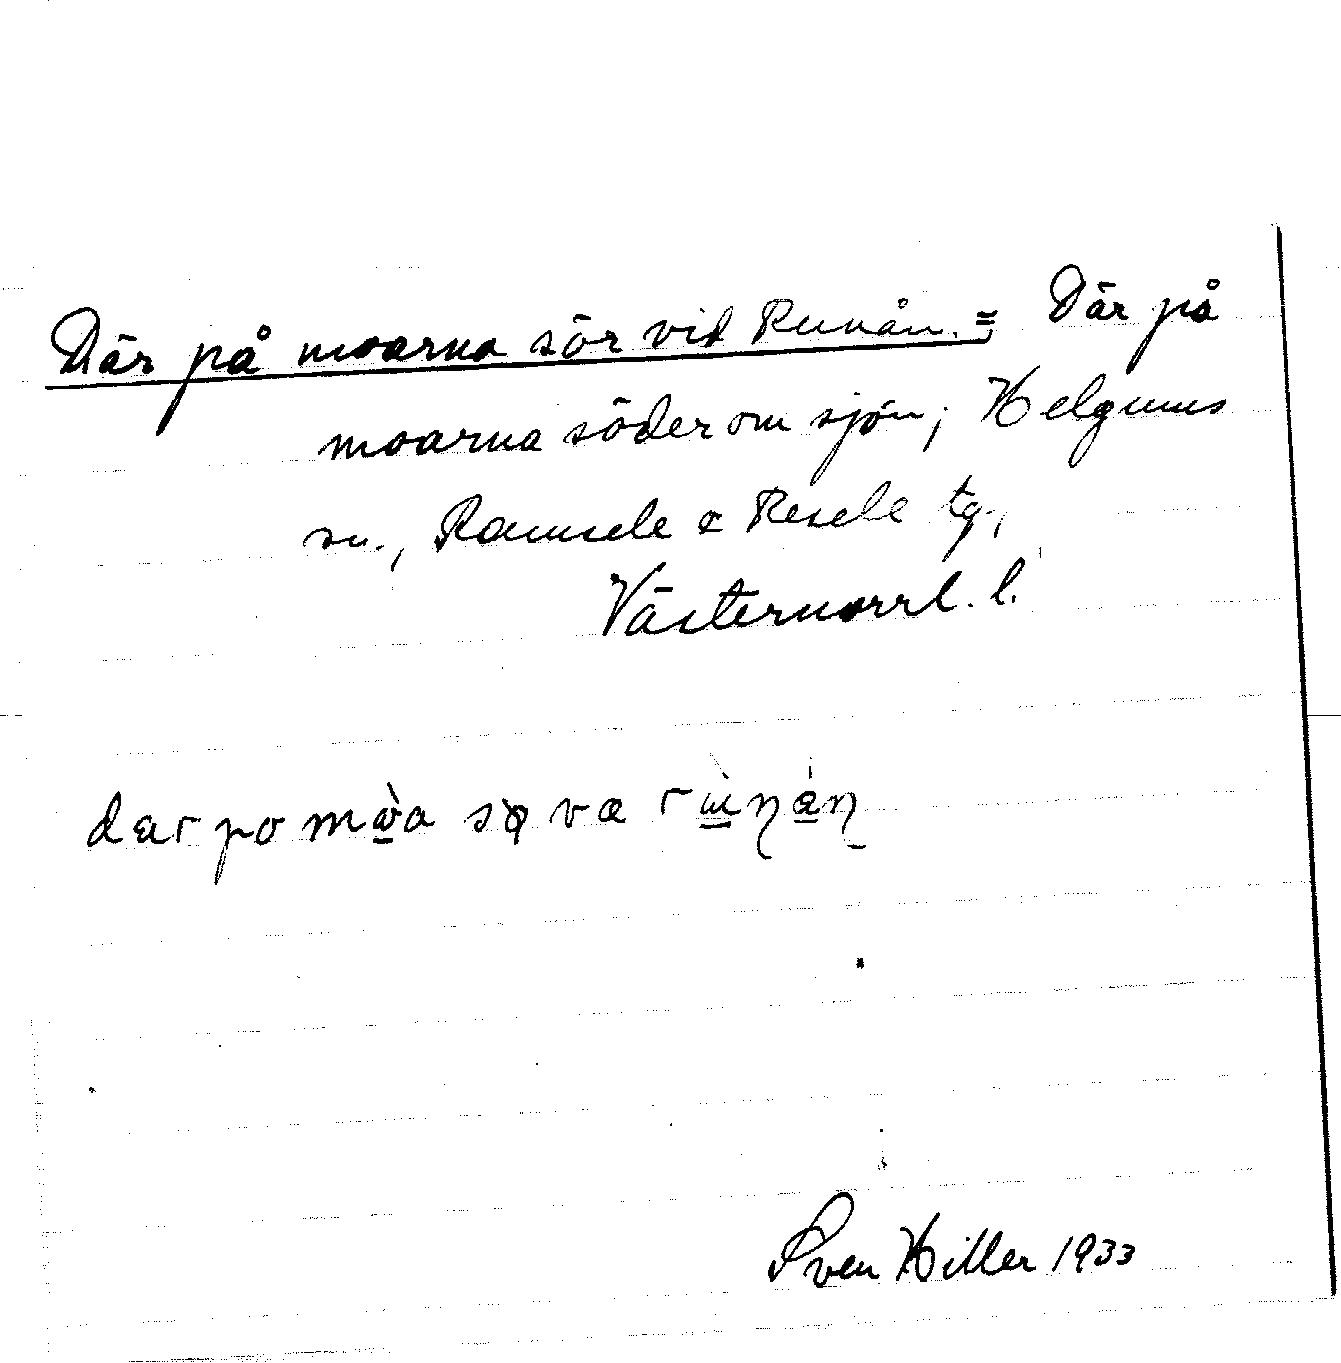 Där på moarna sör vid Runån. = Där på
moarna söder om sjön; Helgums
sn., Ramsele & Resele tg.,
Västernorrl. l.
dar po
Sven Hiller 1933